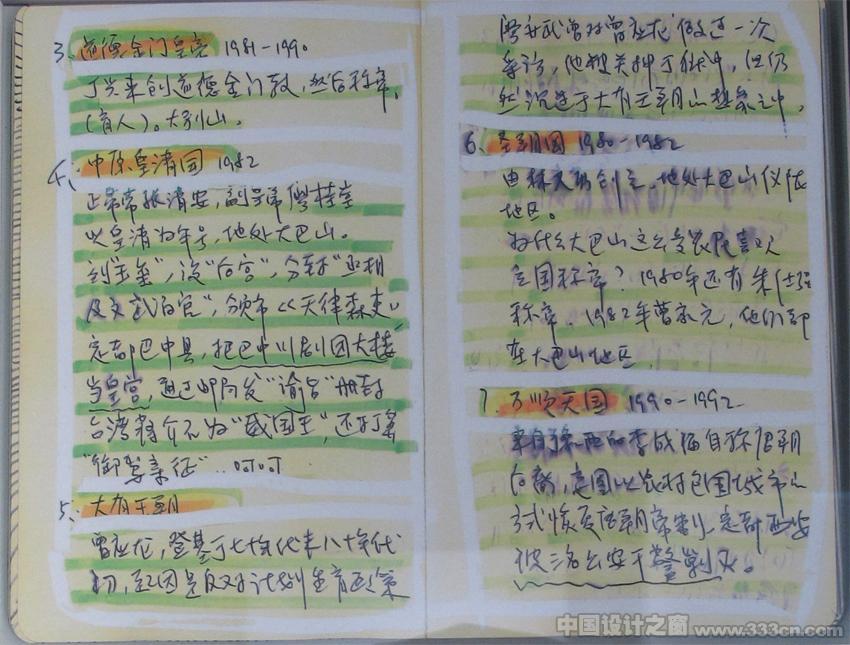 3、道德金门皇帝 1981-1990
丁兴来创道德金门教，然后称帝。
（盲人）。大别山。
4、中原皇清国 1982
正帝张清安，副帝廖桂堂
以皇清为年号，地处大巴山。
刻"玉玺"，设"后宫"，分封"丞相
及文武百官"，颁布《天律森吏》
定都巴中县，把巴中川剧团大楼
当皇宫，通过邮局发"谕旨"册封
台湾蒋介石为"威国王"，还打算
"御驾亲征"…呵呵
5、大有王朝
曾应龙，登基于七十年代末八十年代
初，起因是反对计划生育政策
曾对曾应龙做过一次
采访，他被关押于狱中，但仍
然沉迷于大有王朝的想象之中。
6、圣朝国 1980-1982
由 创立，地处大巴山仪陇
地区。
为什么大巴山这么多农民喜欢
立国称帝？1980年还有朱仕强
称帝，1982年曹家元，他们都
在大巴山地区
7、万顺天国 1990-1992
来自豫西的李成福自称唐朝
后裔，意图以农村包围城市的
方式恢复唐朝帝制，定都西安
被三名公安干警剿灭。
中国设计之窗 www.333cn.com